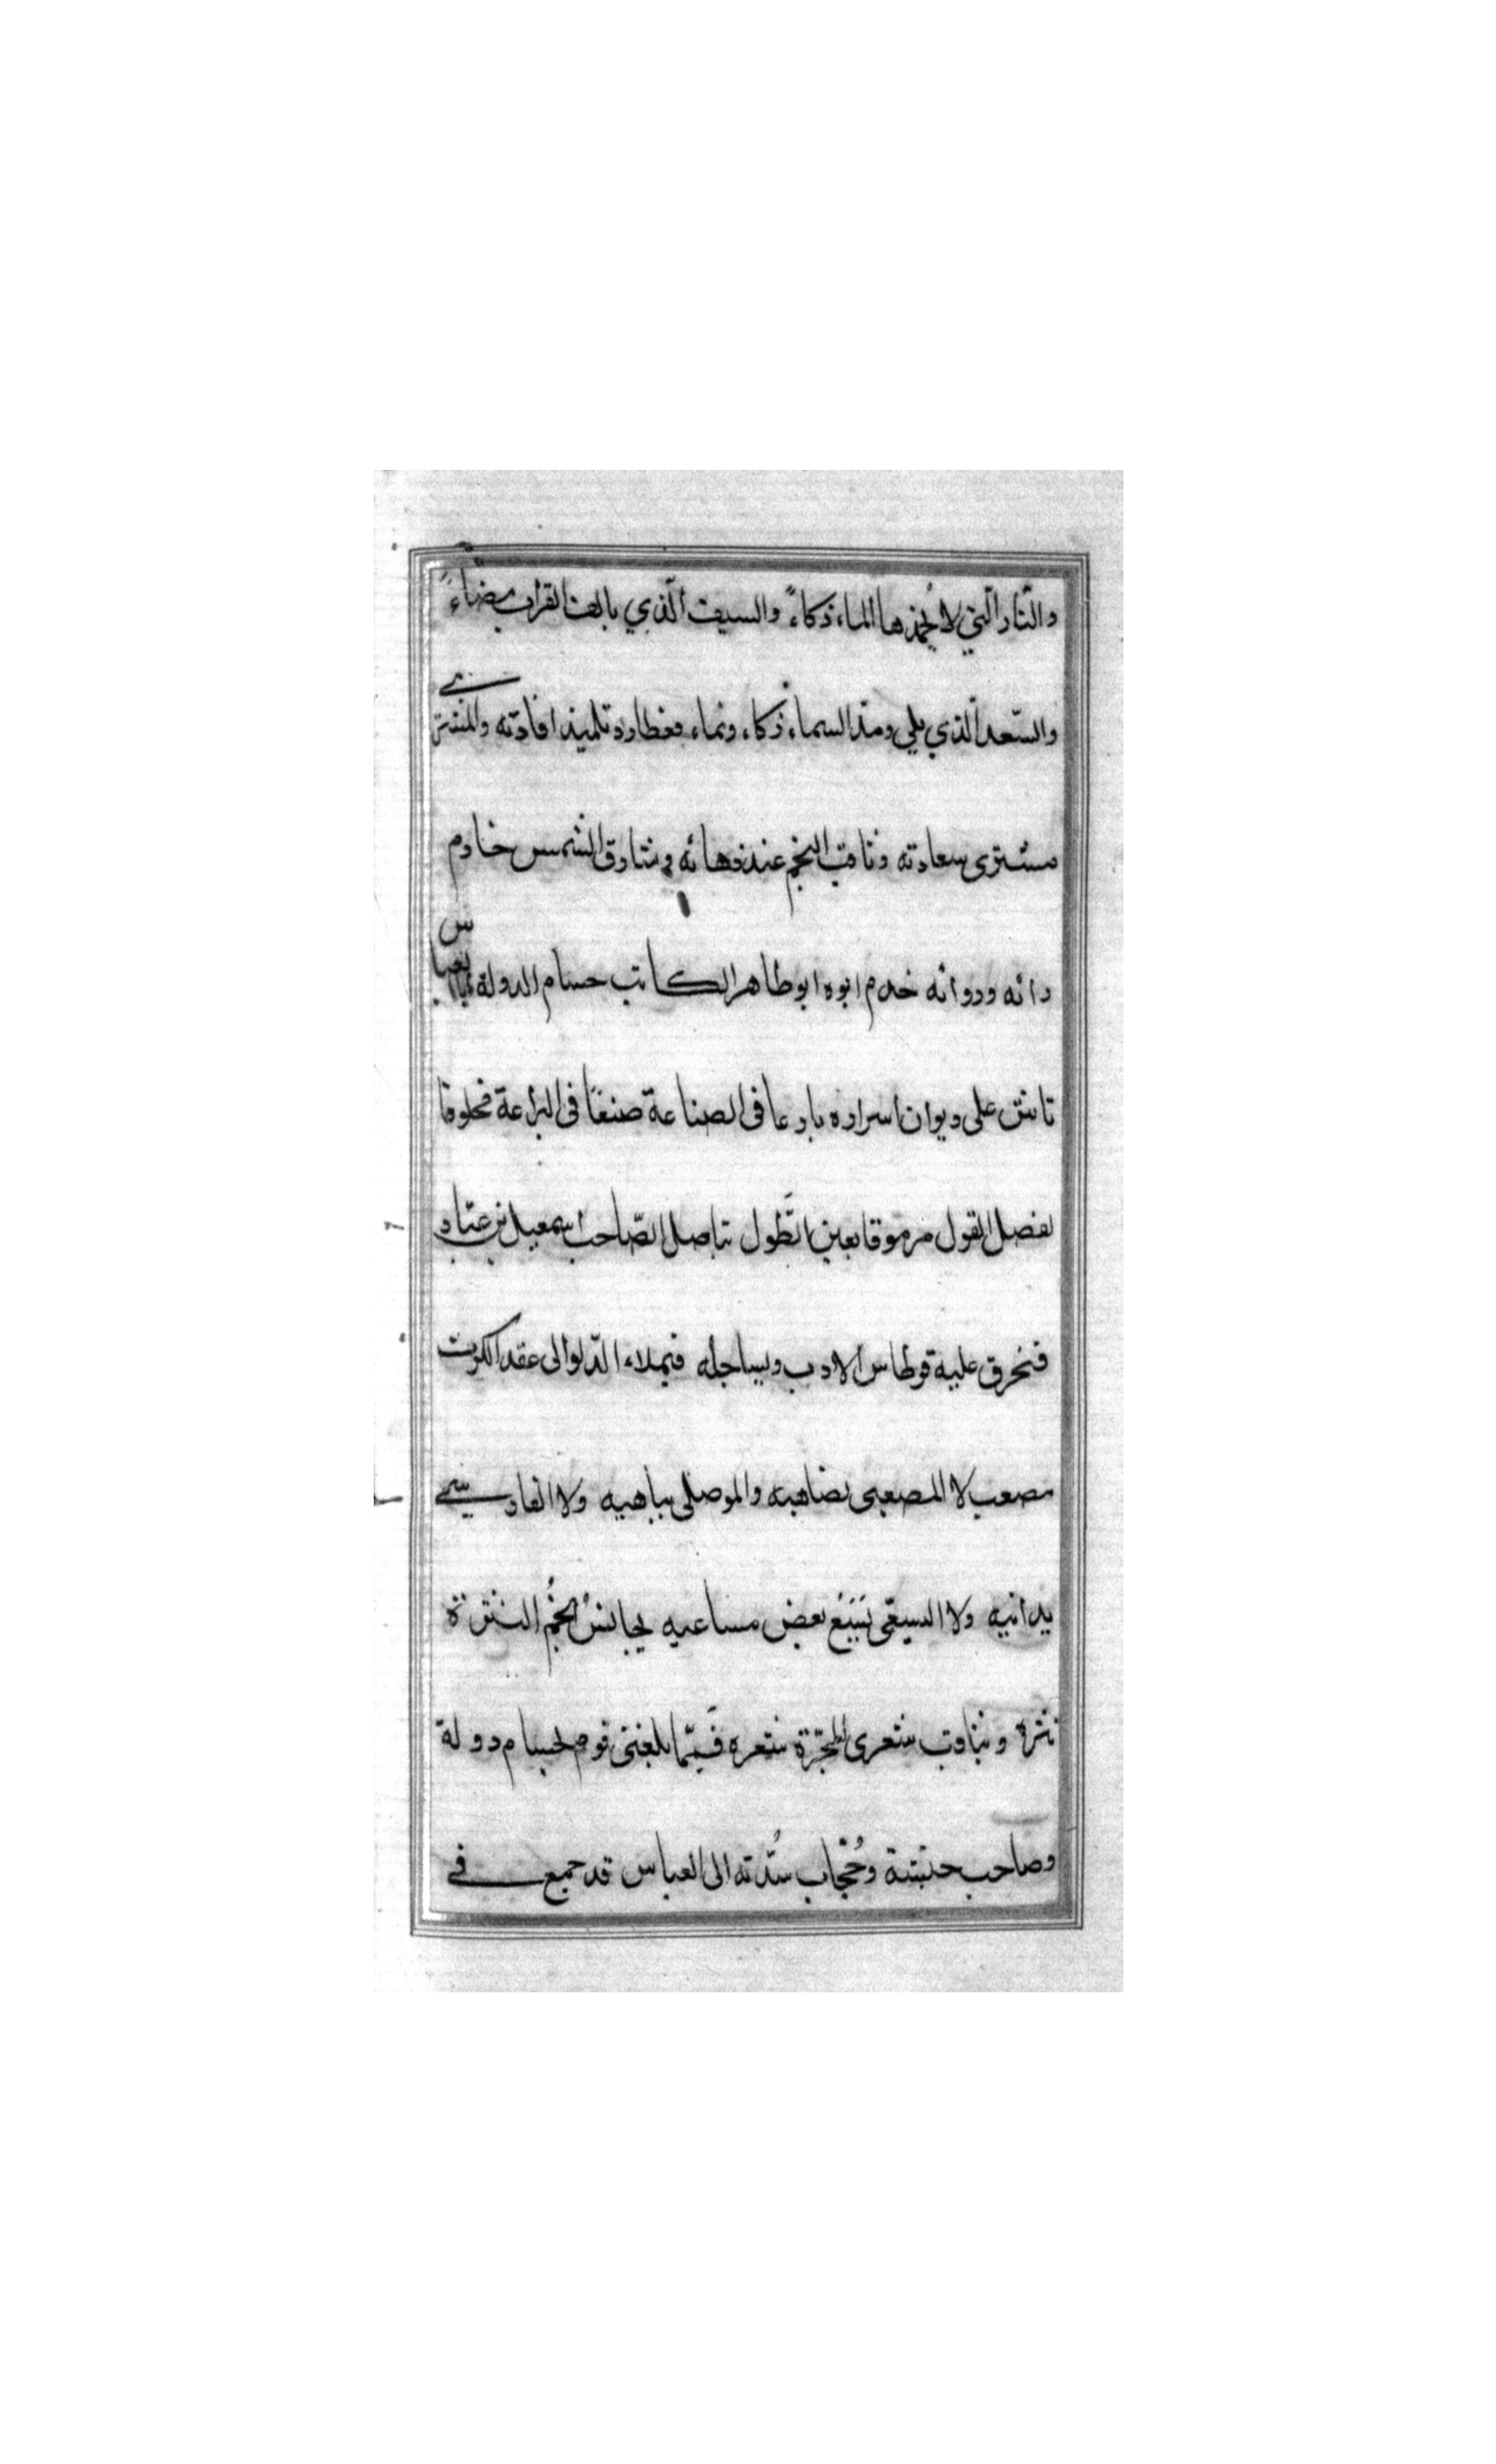 والنّار الّتي لا يُخمدها الماء ذكاءً والسيف الّذي يالف القراب مضاءً
والسّعد الّذي يلي ومد السماء ذكاء ونماء فعطارد تلميذ افادته والمشتري
مشترى سعادته وثاقب النجم عند دهائه وشارق الشمس خادم
رائه وروائه خدم ابوه ابو طاهر الكاتب حسام الدولة ابا العباس
تاش على ديوان اسراره بارعا فى الصناعة صنعًا فى البراعة مخلوقا
لفصل القول مرموقا بعين الطَّول يناضل الصّاحب اسمعيل بن عبّاد
فنخرق عليه قرطاس الادب ويساجله فيملاء الدّلو الى عقد الكرب
مصعب لا المصعبى يضاهيه والموصلى يباهيه ولا الفارسي
يدانيه ولا السيفى يَتبَعُ بعض مساعيه يجانسُ انجُم النثرة
نثرهُ ويناوب شعرى المجرّة شعره فَممّا بلغنى قوم لحسام دولة
وصاحب وحُجّاب سُدّته الى العباس قد جمع في